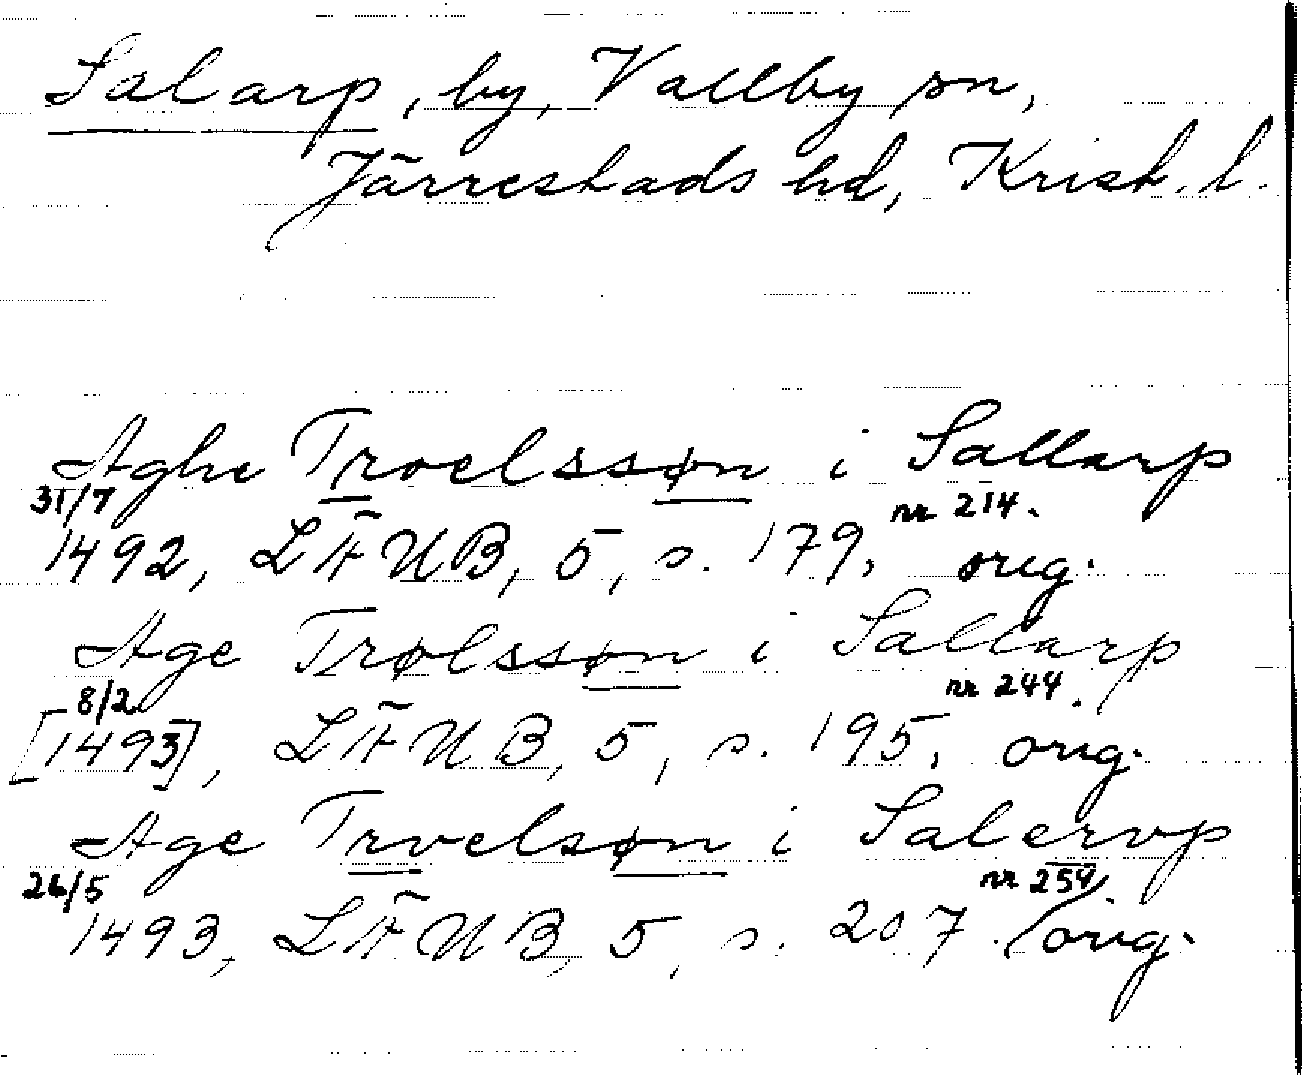 Salarp, by, Vallby sn,
Järrestads hd, Krist. l.
Aghe Troelssøn i Sallarp
31/7 nr 214.
1492, LÄUB, 5, s. 179, orig.
Age Trølssøn i Sallarp
8/2 nr 244.
[1493], LÄUB, 5, s. 195, orig.
Age Trvelsøn i Salervp
26/5 nr 259.
1493, LÄUB, 5, s. 207. orig.